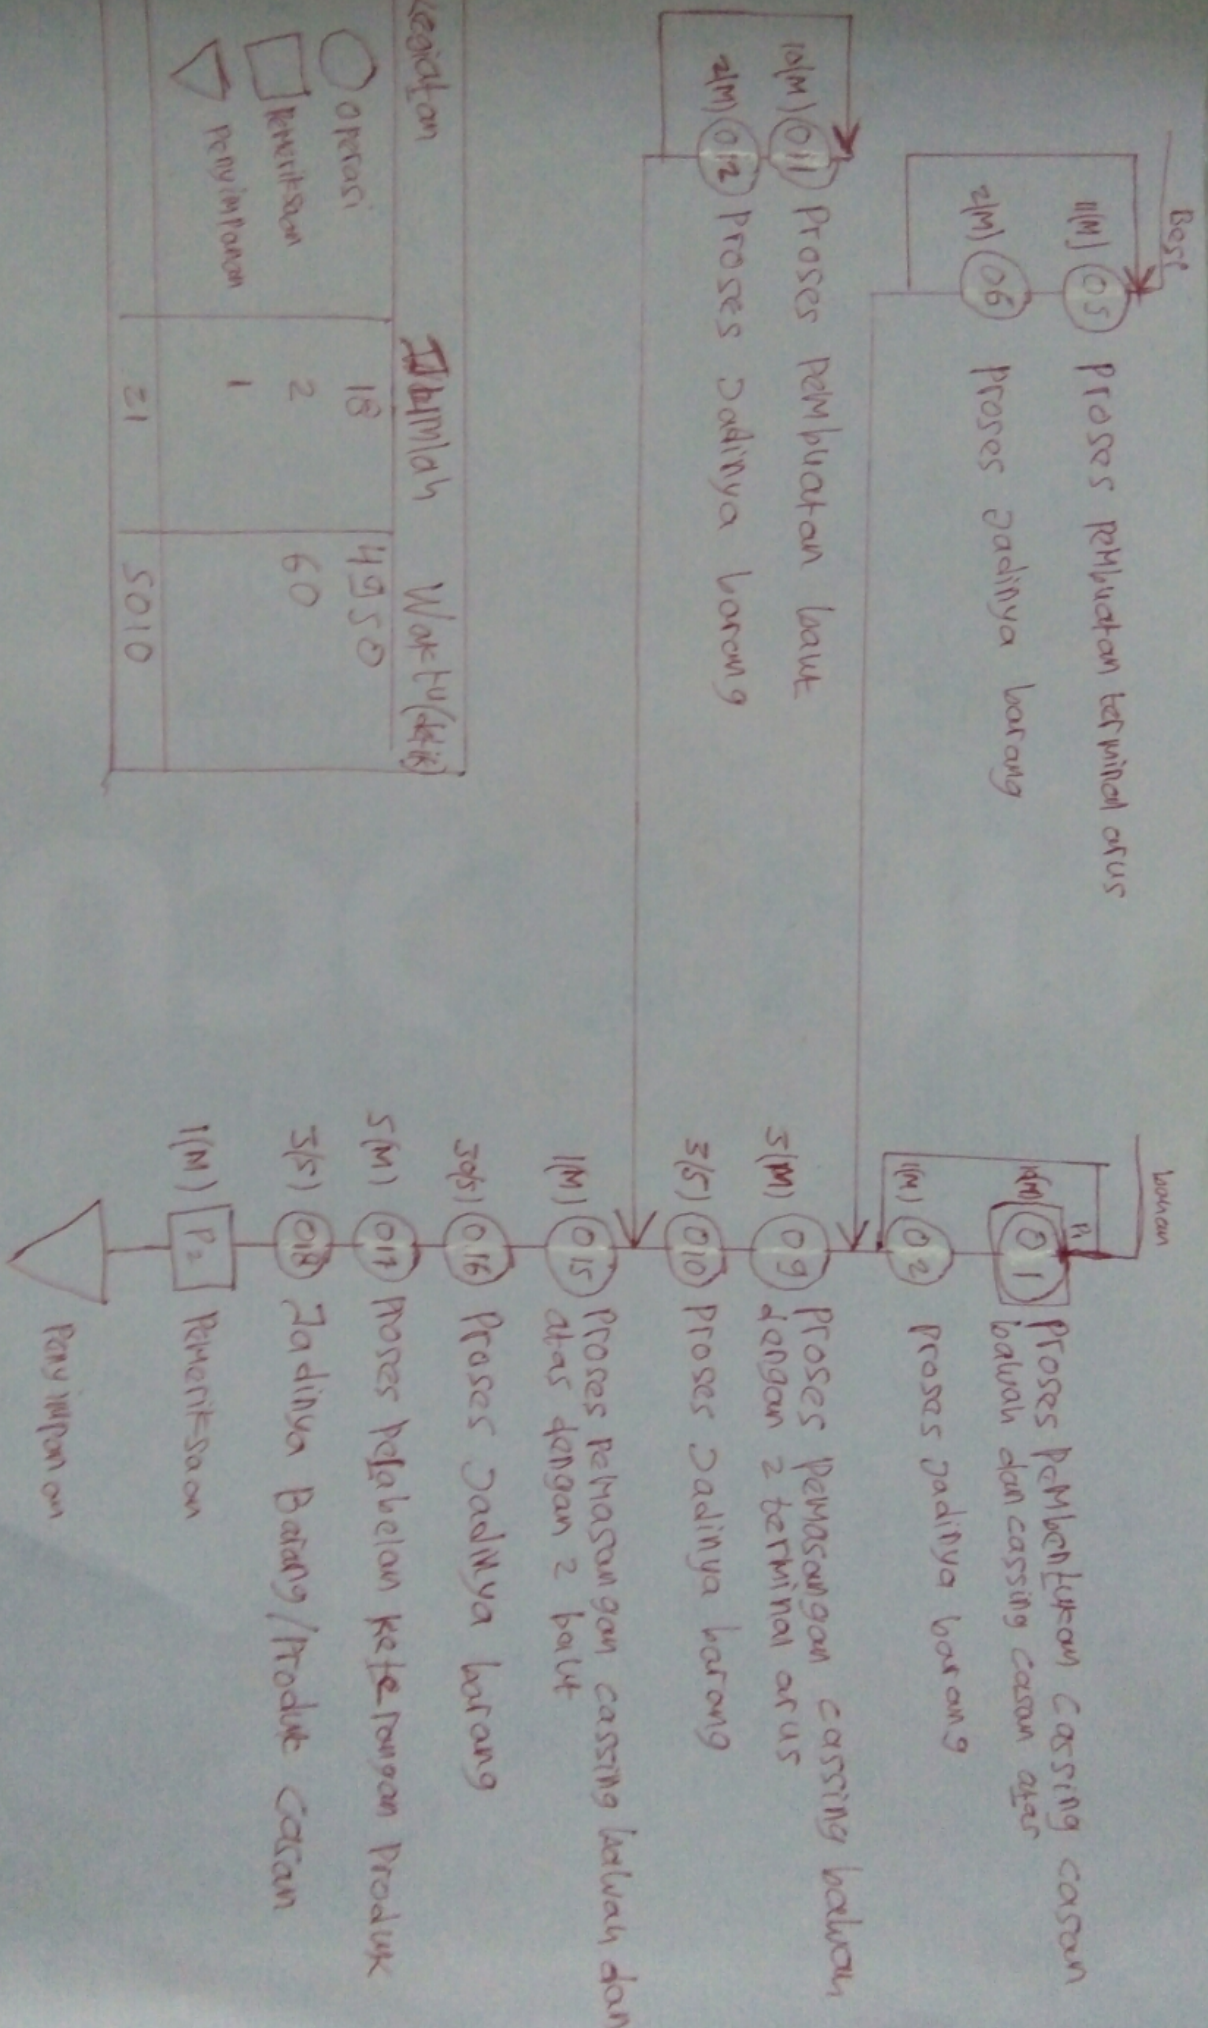 Besi
11(M) O5 Proses pembuatan terminal arus
2(M) O6 Proses Jadinya barang
10(M) O11 Proses pembuatan baut
2(M) O12 Proses Jadinya barang
bahan
P1
O1 Proses pembentukan cassing casan
bawah dan cassing casan atas
1(M) O2 Proses Jadinya barang
5(M) O9 Proses pemasangan cassing bawah
dengan 2 terminal arus
3(S) O10 Proses Jadinya barang
1(M) O15 Proses pemasangan cassing bawah dan
atas dengan 2 baut
30(S) O16 Proses Jadinya barang
5(M) O17 Proses pelabelan keterangan Produk
3(S) O18 Jadinya Barang/Produk Casan
1(M) P2 Pemeriksaan
Penyimpanan
Kegiatan Jumlah Waktu (detik)
Operasi 18 4950
Pemeriksaan 2 60
Penyimpanan 1
21 5010